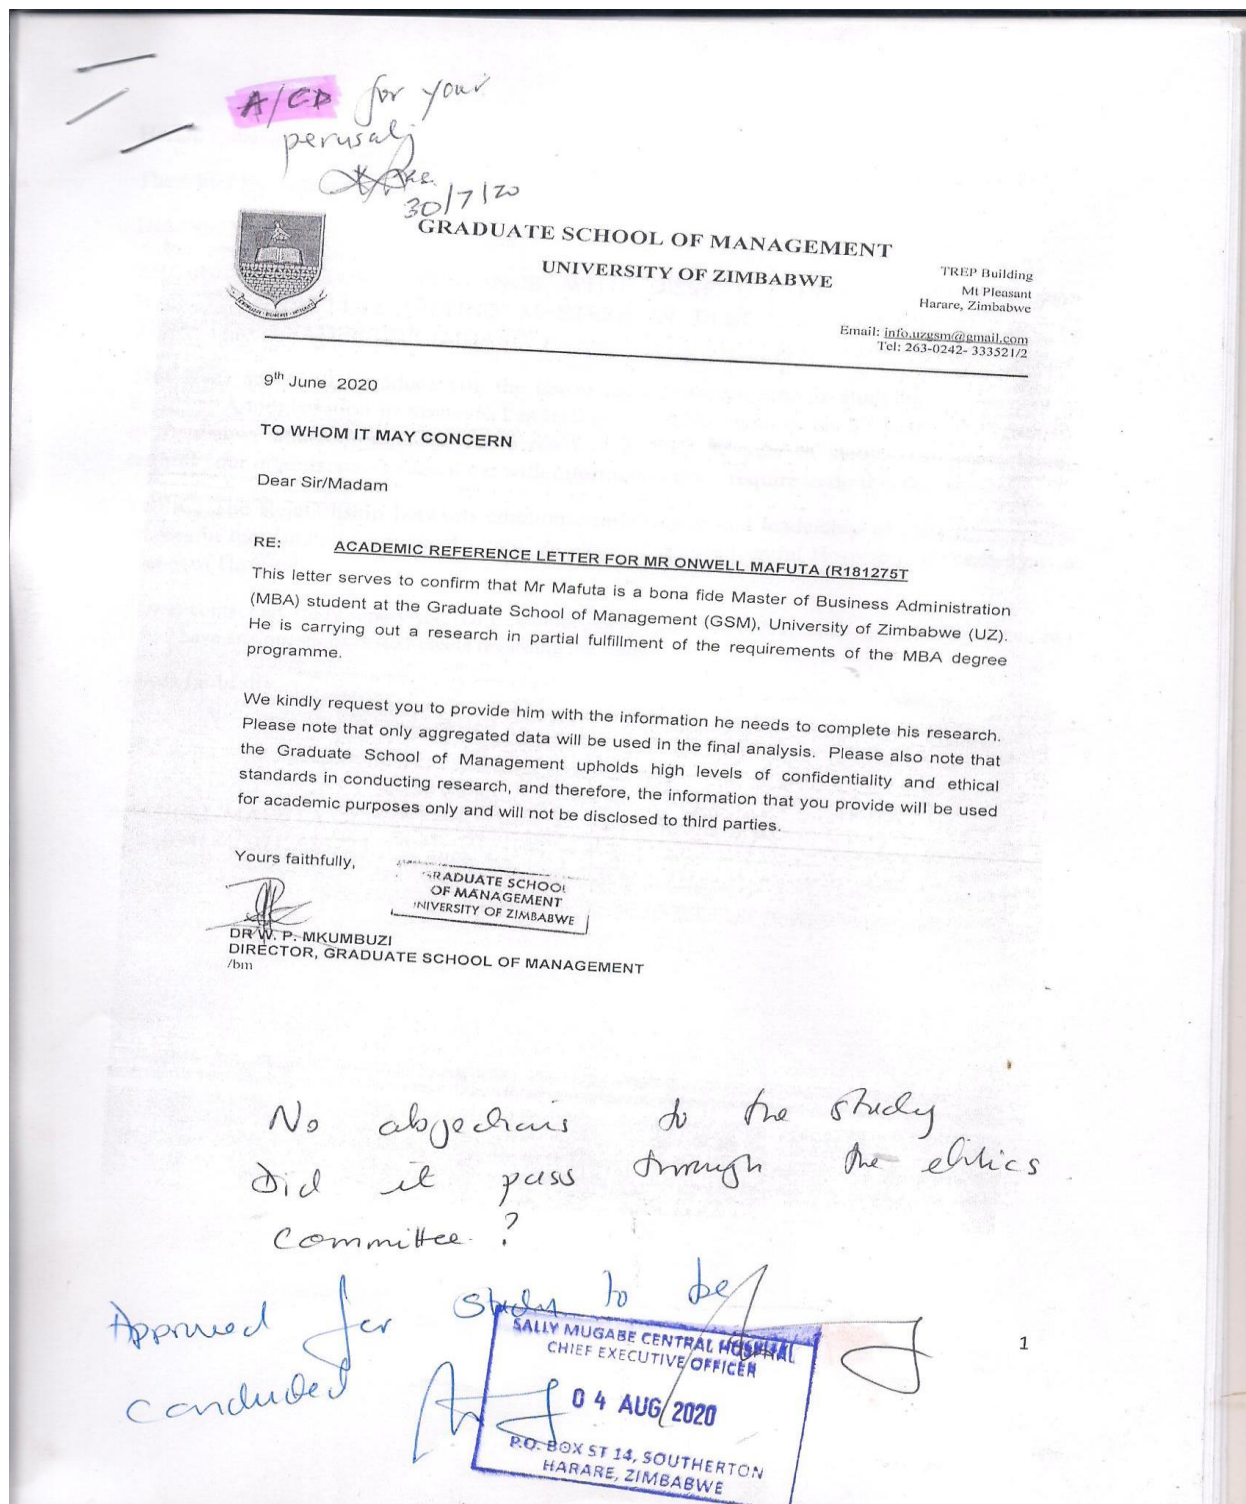 A/CD for your
perusal
30/7/20
GRADUATE SCHOOL OF MANAGEMENT
UNIVERSITY OF ZIMBABWE
TREP Building
Mt Pleasant
Harare, Zimbabwe
Email: info.uzgsm@gmail.com
Tel: 263-0242- 333521/2
9th June 2020
TO WHOM IT MAY CONCERN
Dear Sir/Madam
RE: ACADEMIC REFERENCE LETTER FOR MR ONWELL MAFUTA (R181275T
This letter serves to confirm that Mr Mafuta is a bona fide Master of Business Administration
(MBA) student at the Graduate School of Management (GSM), University of Zimbabwe (UZ).
He is carrying out a research in partial fulfillment of the requirements of the MBA degree
programme.
We kindly request you to provide him with the information he needs to complete his research.
Please note that only aggregated data will be used in the final analysis. Please also note that
the Graduate School of Management upholds high levels of confidentiality and ethical
standards in conducting research, and therefore, the information that you provide will be used
for academic purposes only and will not be disclosed to third parties.
Yours faithfully,
GRADUATE SCHOOL
OF MANAGEMENT
UNIVERSITY OF ZIMBABWE
DR W. P. MKUMBUZI
DIRECTOR, GRADUATE SCHOOL OF MANAGEMENT
/bm
No objections to the study
Did it pass through the ethics
committee ?
Approved for study to be
conducted
SALLY MUGABE CENTRAL HOSPITAL
CHIEF EXECUTIVE OFFICER
04 AUG 2020
P.O. BOX ST 14, SOUTHERTON
HARARE, ZIMBABWE
1